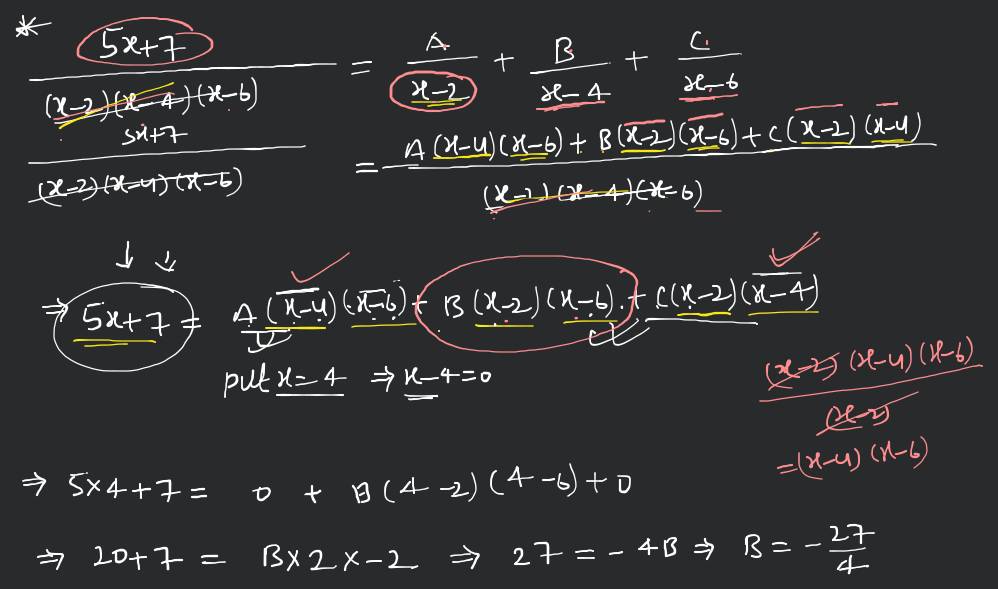 * 5x+7 / (x-2)(x-4)(x-6) = A / x-2 + B / x-4 + C / x-6
5x+7 / (x-2)(x-4)(x-6) = A(x-4)(x-6) + B(x-2)(x-6) + C(x-2)(x-4) / (x-2)(x-4)(x-6)
⇒ 5x+7 = A(x-4)(x-6) + B(x-2)(x-6) + C(x-2)(x-4)
put x=4 ⇒ x-4=0
(x-2)(x-4)(x-6) / (x-2)
=(x-4)(x-6)
⇒ 5×4+7 = 0 + B(4-2)(4-6)+0
⇒ 20+7 = B×2×-2 ⇒ 27 = -4B ⇒ B = -27/4